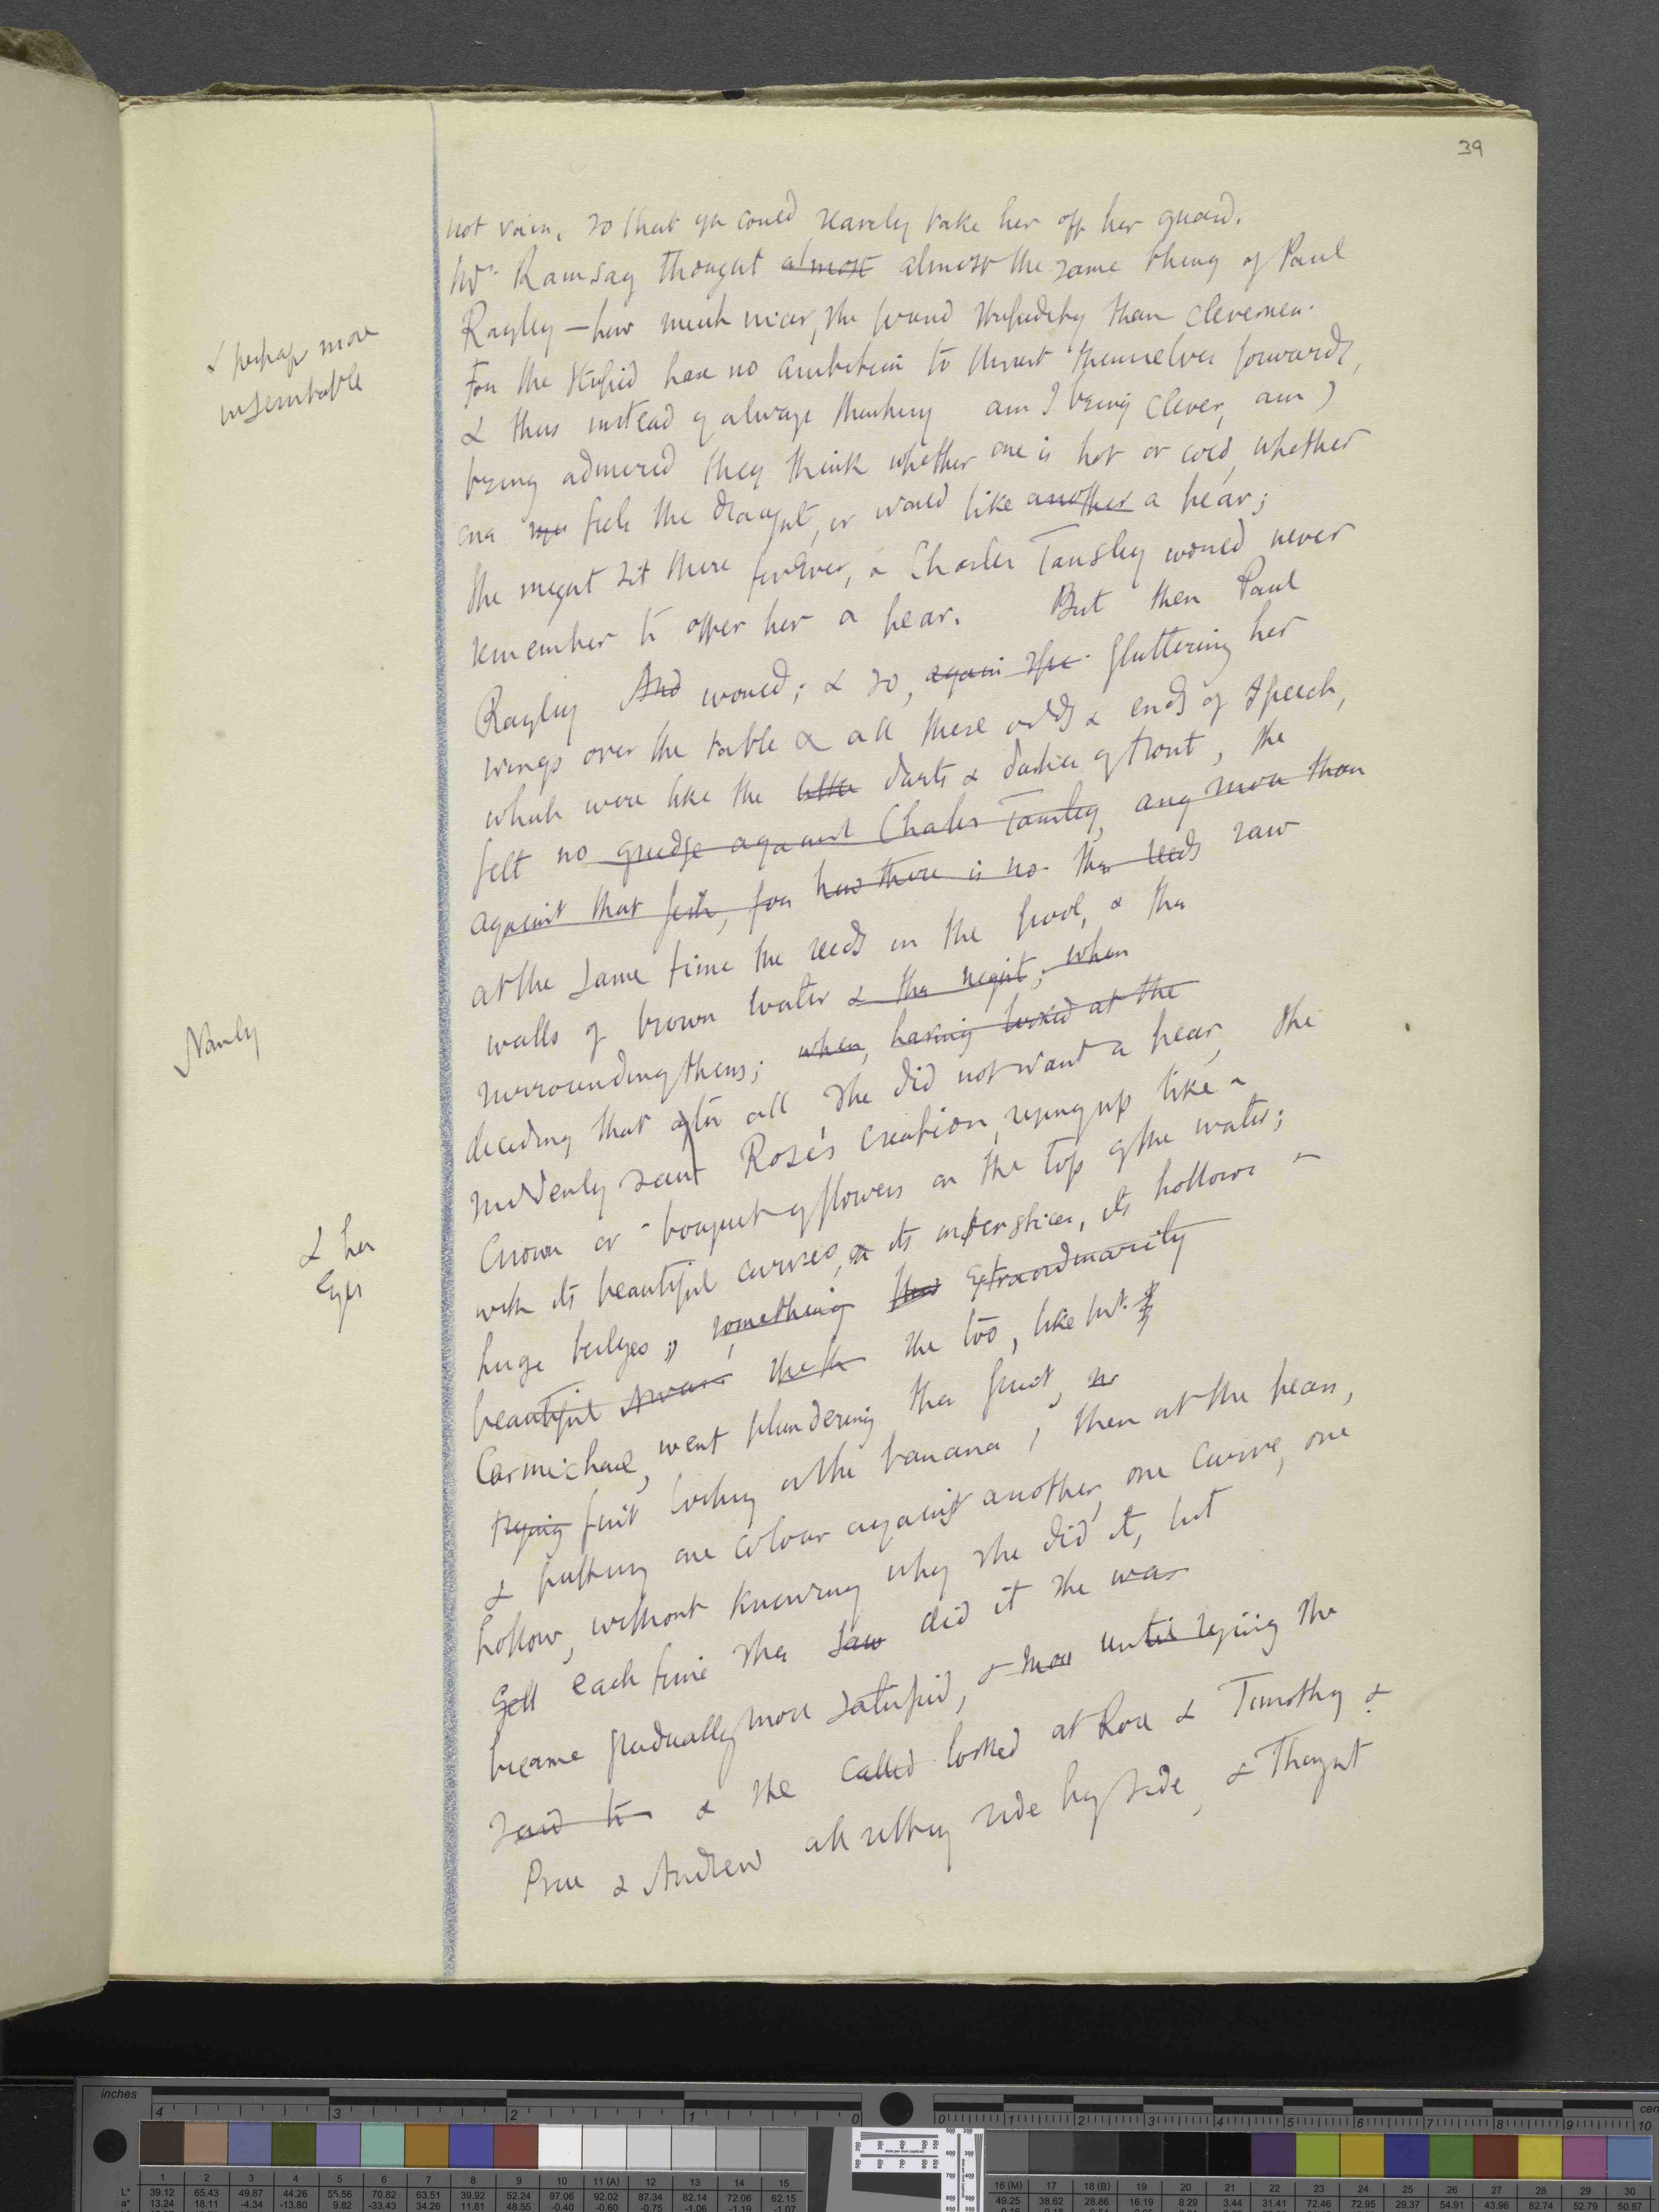 39
not vain, so that you could rarely take her off her guard.
Mrs. Ramsay thought almost almost the same thing of Paul
Rayley — how much nicer, she found stupidity than cleverness.
& perhaps more
For the stupid have no ambition to thrust themselves forwards,
& thus instead of always thinking am I being clever, am I
being admired they think whether one is hot or cold, whether
one feels the draught, or would like another a pear;
She might sit there for ever, & Charles Tansley would never
remember to offer her a pear. But then Paul
Rayley And would; & so, again she fluttering her
wings over the table & all these odds & ends of speech,
which were like the little darts & dashes of trout, she
felt no grudge against Charles Tansley, any more than
against that fish, for how there is no the reeds saw
at the same time the reeds in the pool, & the
walls of brown water & the night; when
surrounding them; when, having looked at the
Nancy
deciding that after all she did not want a pear, she
suddenly saw Rose's creation, rising up like a
crown or a bouquet of flowers on the top of the water;
& her
eyes
with its beautiful curves, & its interstices, its hollows &
huge bulges; something extraordinarily
beautiful she too, like Mr.
Carmichael, went plundering the fruit,
trying first looking at the banana, then at the pears,
& putting one colour against another, one curve, one
hollow, without knowing why she did it, but
each time she saw did it she was
became gradually more satisfied, & more until sighing she
said to & she called looked at Rose & Timothy &
Prue & Andrew all sitting side by side, & thought